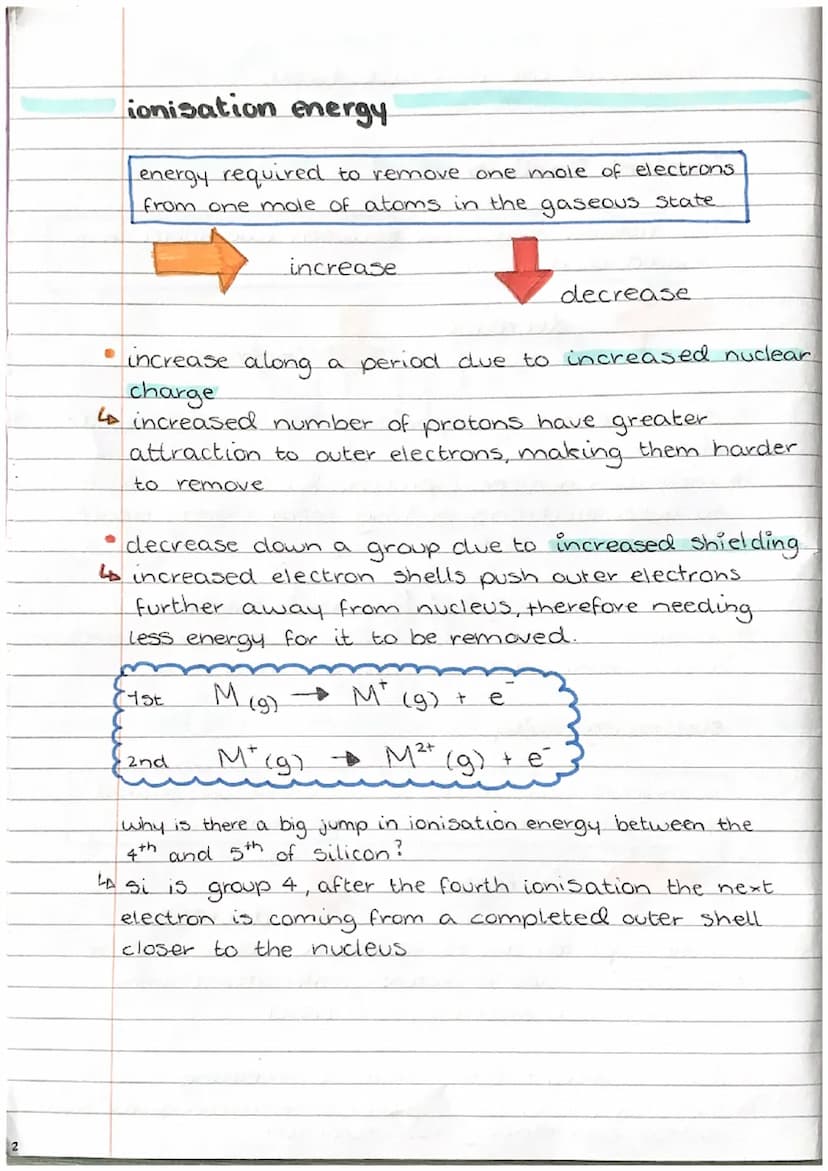 ionisation energy
energy required to remove one mole of electrons
from one mole of atoms in the gaseous state
increase
decrease
• increase along a period due to increased nuclear
charge
↳ increased number of protons have greater
attraction to outer electrons, making them harder
to remove
• decrease down a group due to increased shielding
↳ increased electron shells push outer electrons
further away from nucleus, therefore needing
less energy for it to be removed.
1st M (g) → M⁺ (g) + e⁻
2nd M⁺ (g) → M²⁺ (g) + e⁻
why is there a big jump in ionisation energy between the
4th and 5th of silicon?
↳ si is group 4, after the fourth ionisation the next
electron is coming from a completed outer shell
closer to the nucleus
2